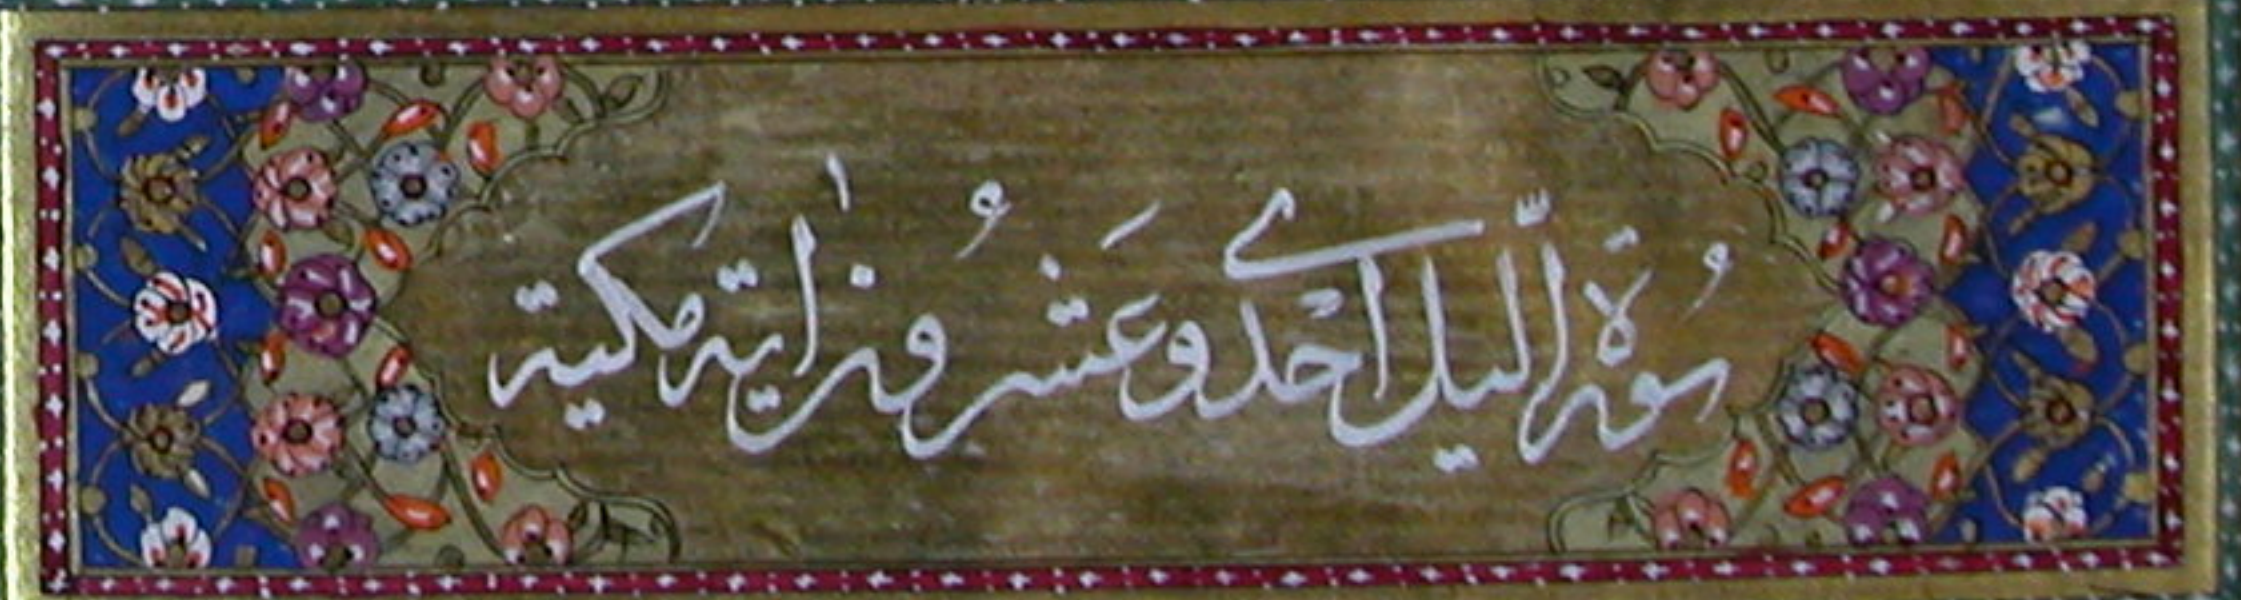 سُورَةُ الَّلیل اَحْدےٰ وعَشرُونَ اٰیة مکیة